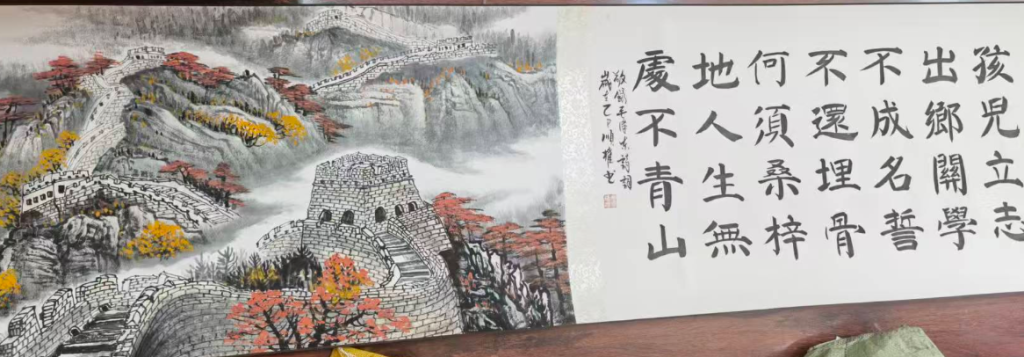 孩兒立志
出鄉關學
不成名誓
不還埋骨
何須桑梓
地人生無
處不青山
敬錄毛澤東詩詞